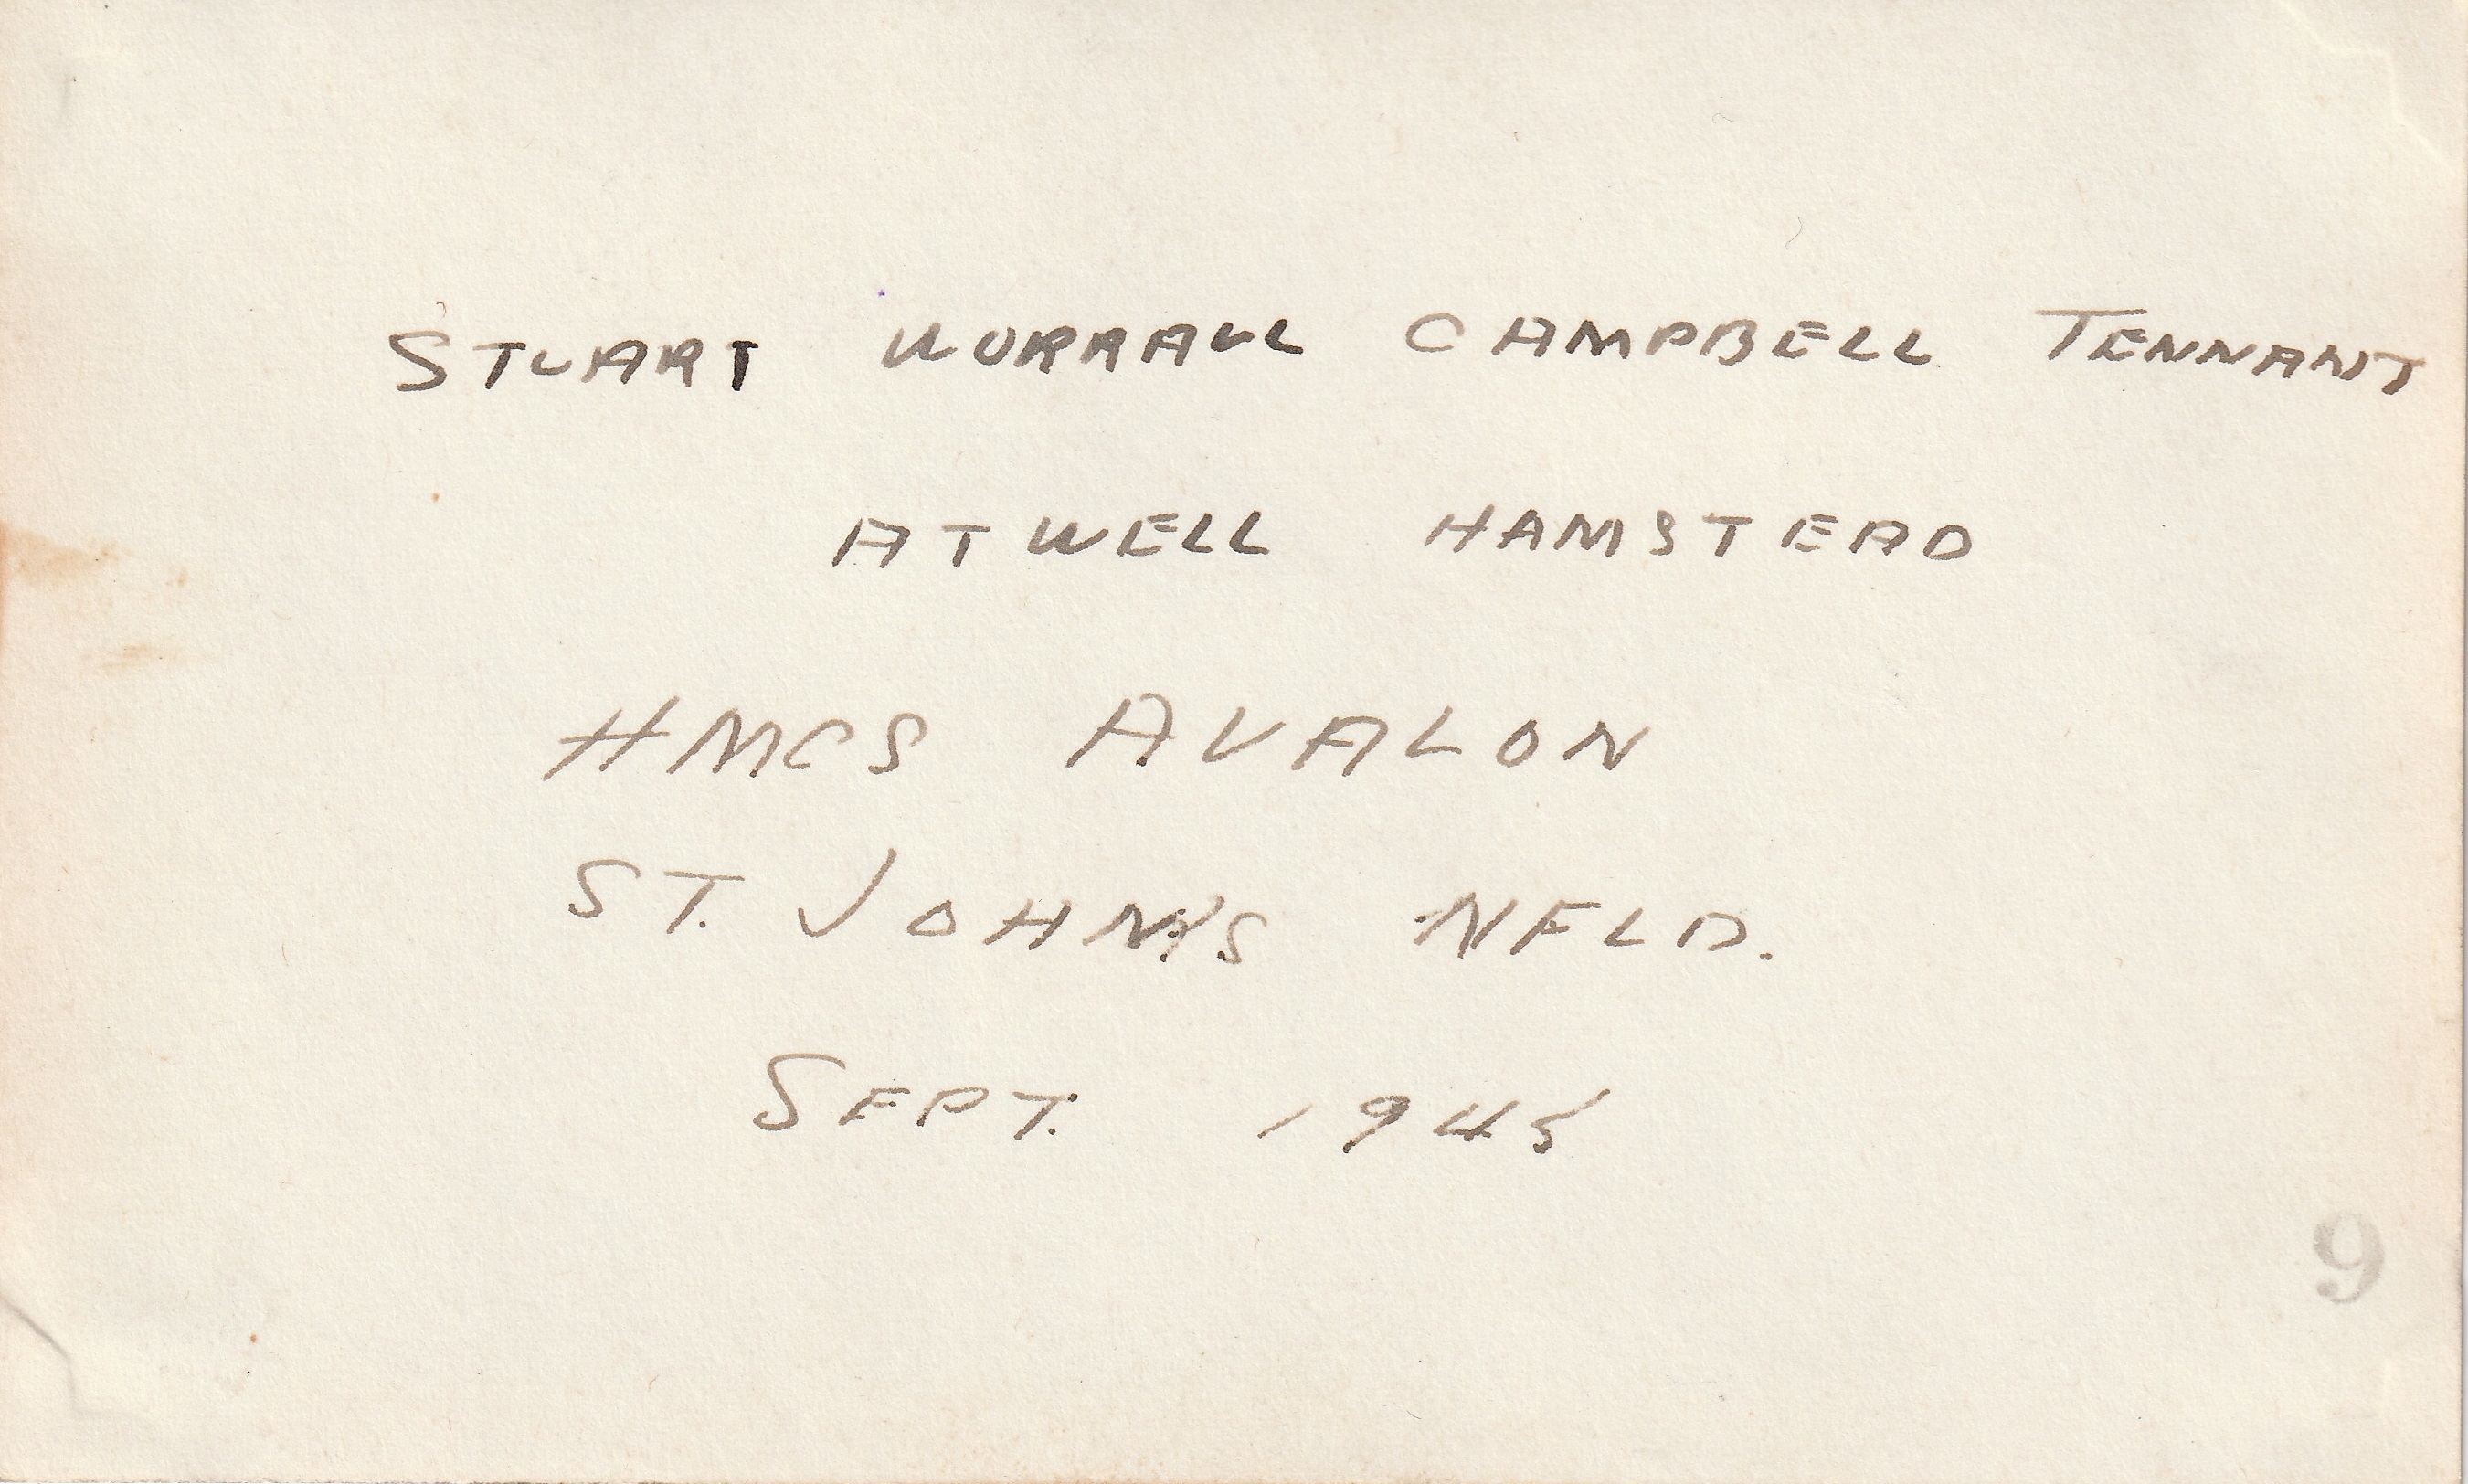 STUART WORRALL CAMPBELL TENNANT
ATWELL HAMSTEAD
HMCS AVALON
ST. JOHN'S NFLD.
SEPT. 1945
9